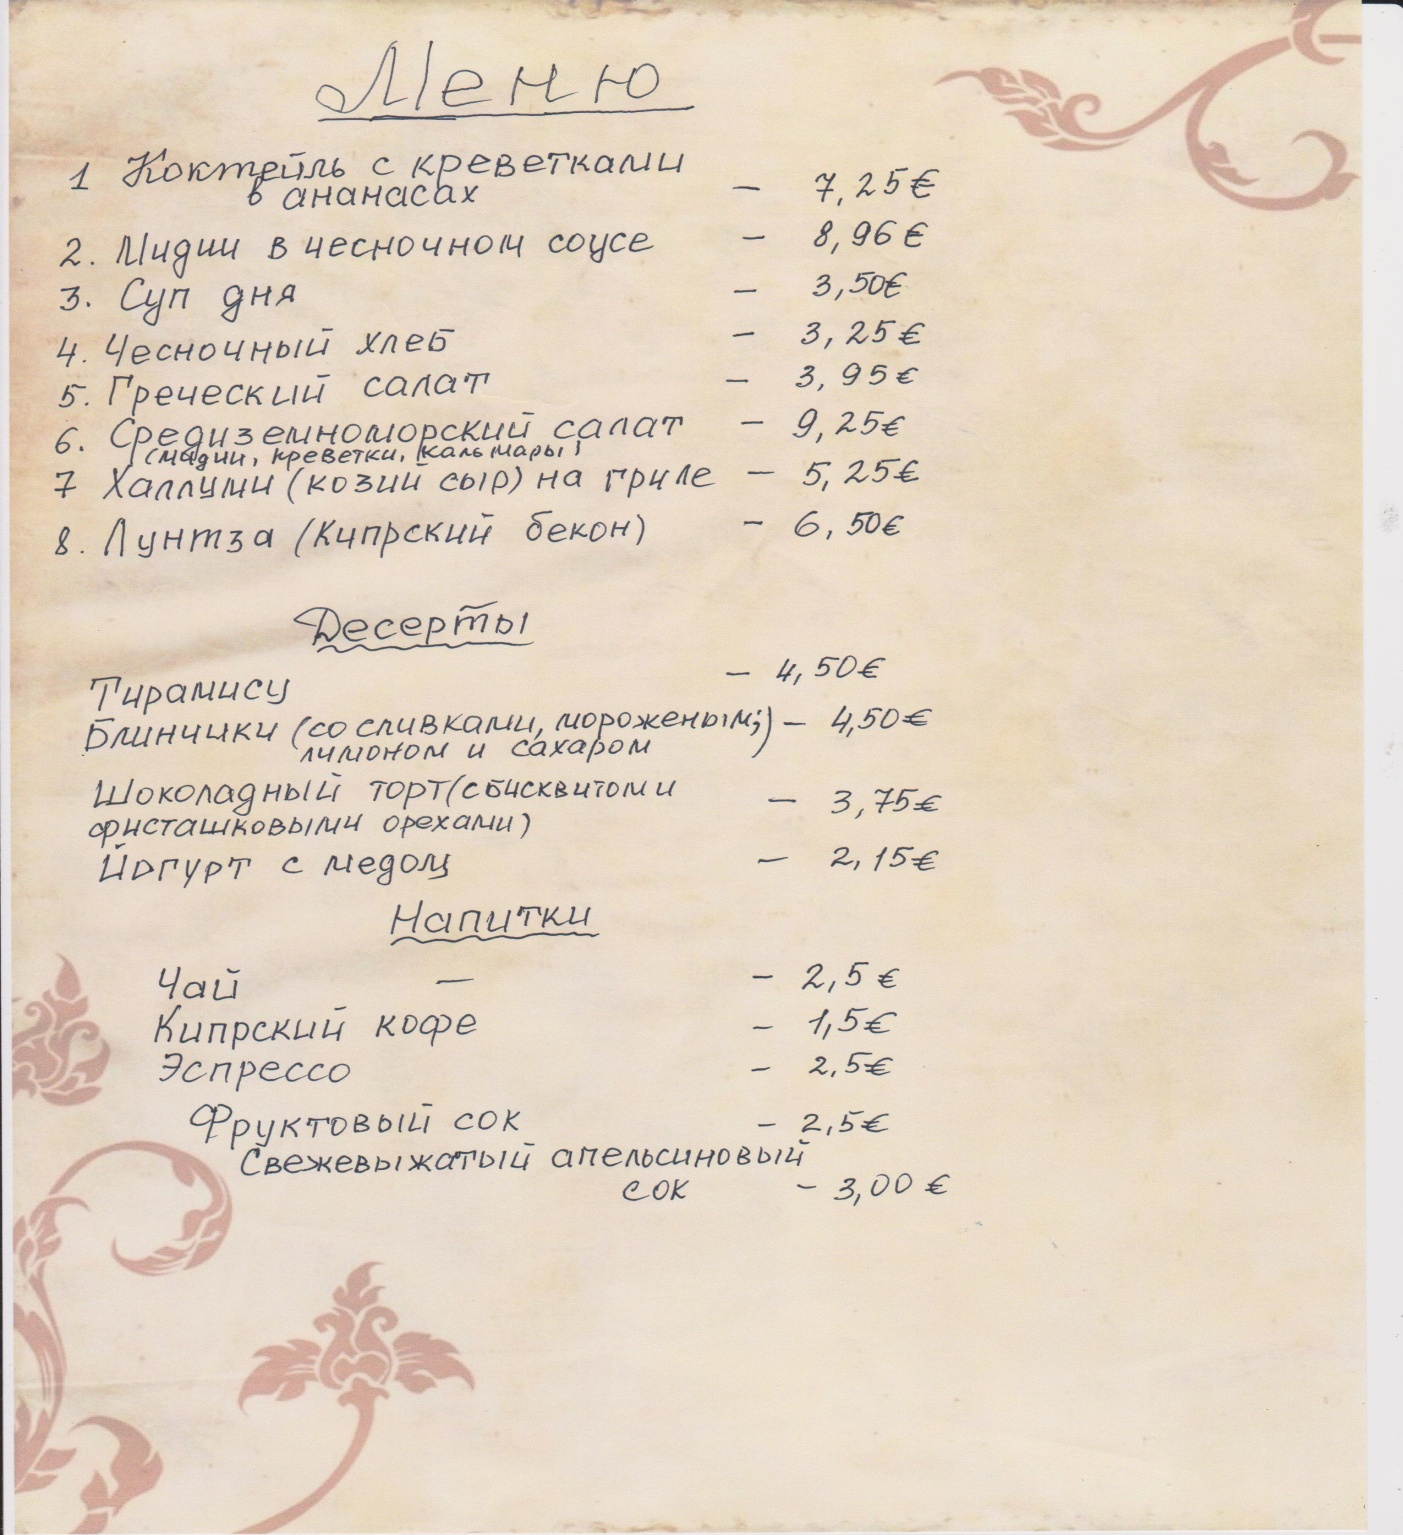 Меню
1 Коктейль с креветками
в ананасах - 7,25€
2. Мидии в чесночном соусе - 8,96€
3. Суп дня - 3,50€
4. Чесночный хлеб - 3,25€
5. Греческий салат - 3,95€
6. Средиземноморский салат - 9,25€
(мидии, креветки, кальмары)
7 Халлуми (козий сыр) на гриле - 5,25€
8. Лунтза (Кипрский бекон) - 6,50€
Десерты
Тирамису - 4,50€
Блинчики (со сливками, мороженым; - 4,50€
лимоном и сахаром)
Шоколадный торт (с бисквитом и
фисташковыми орехами) - 3,75€
Йогурт с медом - 2,15€
Напитки
Чай - - 2,5€
Кипрский кофе - 1,5€
Эспрессо - 2,5€
Фруктовый сок - 2,5€
Свежевыжатый апельсиновый
сок - 3,00€